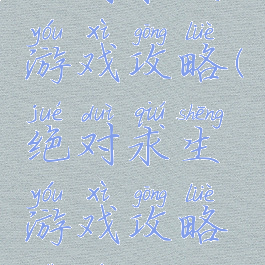 yóu xì gōng lüè
游戏攻略(
jué duì qiú shēng
绝对求生
yóu xì gōng lüè
游戏攻略